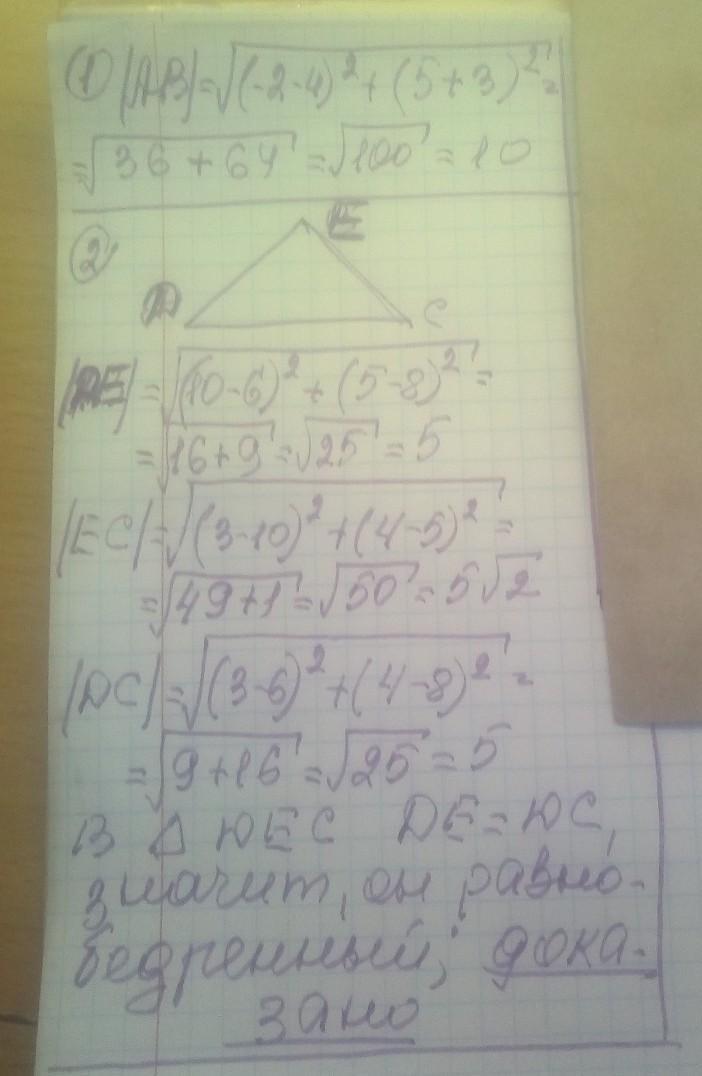 ① |AB| = √(-2-4)² + (5+3)² =
= √36 + 64 = √100 = 10
②
E
D C
|DE| = √(10-6)² + (5-8)² =
= √16+9 = √25 = 5
|EC| = √(3-10)² + (4-5)² =
= √49+1 = √50 = 5√2
|DC| = √(3-6)² + (4-8)² =
= √9+16 = √25 = 5
В △ DEC DE = DC,
значит, он равно-
бедренный, дока-
зано